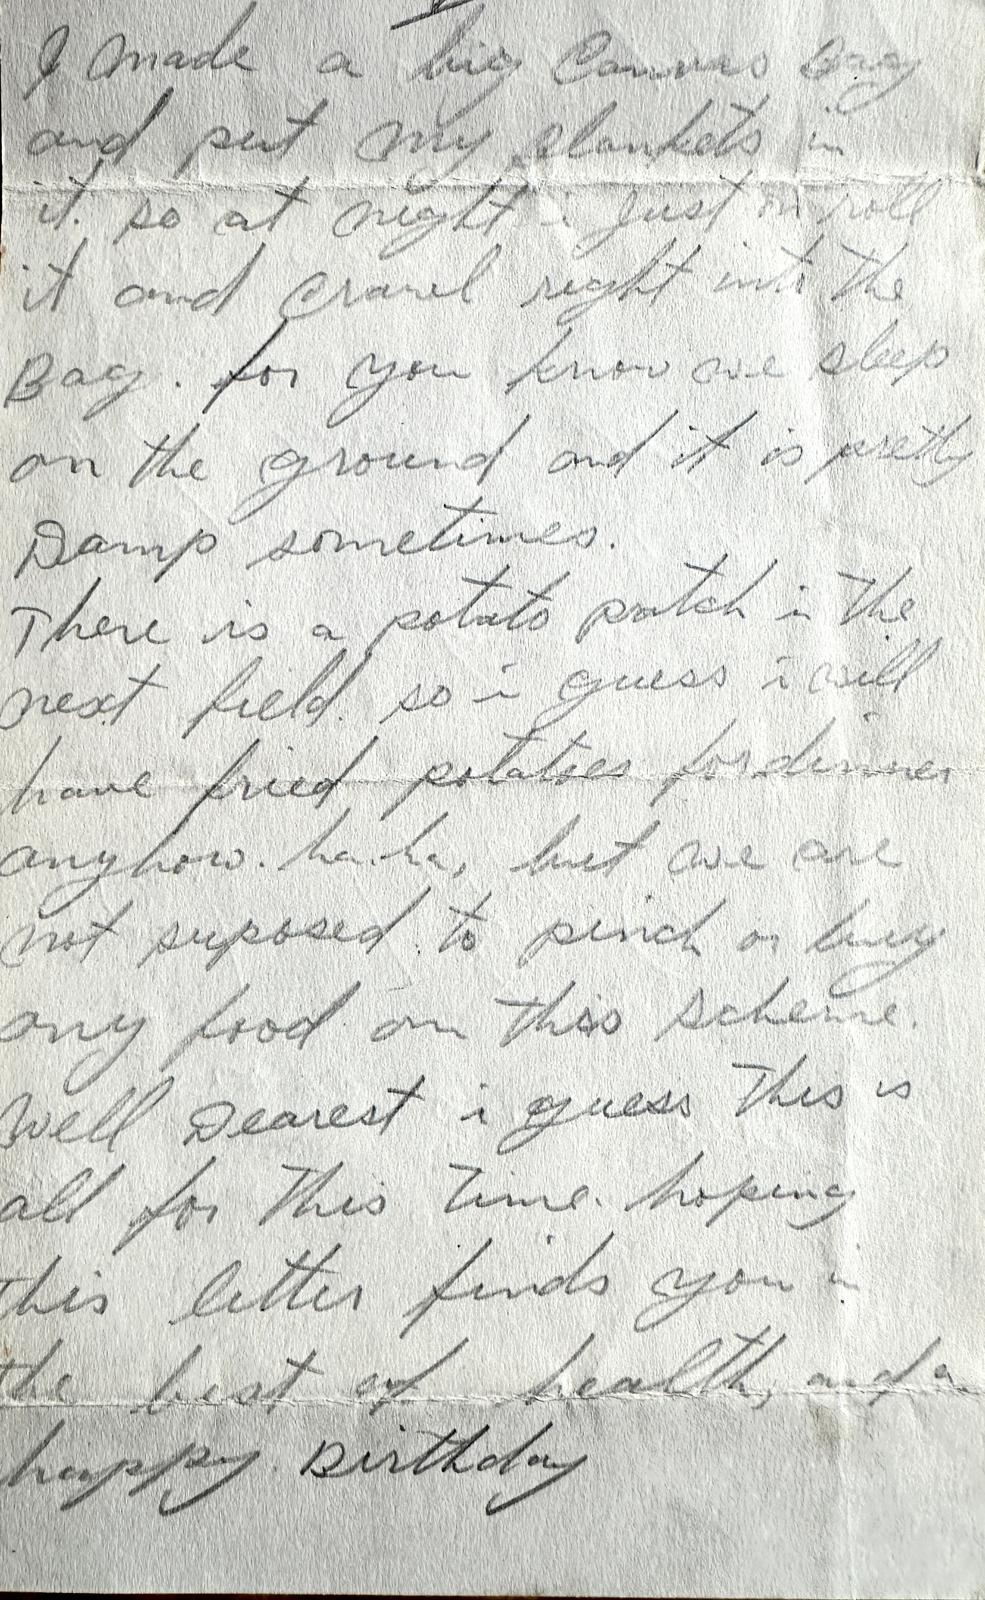 I made a big Canvas Bag
and put my blankets in
it. so at night i just un roll
it and crawl right into the
Bag. for you know we sleep
on the ground and it is pretty
Damp sometimes.
There is a potato patch in the
next field. so i guess i will
have fried potatoes for dinner
anyhow. ha. ha, but we are
not suposed to pinch or buy
any food on this scheme.
Well Dearest i guess This is
all for This Time. hoping
this letter finds you in
the best of health, and a
happy Birthday